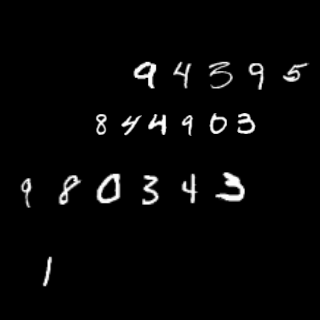 94395
844903
980343
1